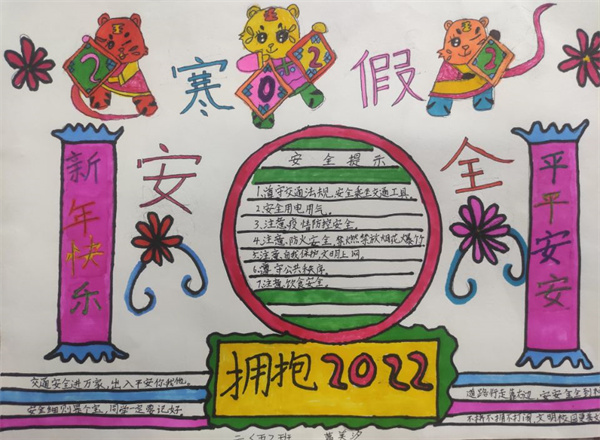 2 0 2 2
寒假
安全
新年快乐
平平安安
安全提示
1.遵守交通法规,安全乘坐交通工具。
2.安全用电用气。
3.注意疫情防控安全。
4.注意防火安全,禁燃禁放烟花爆竹
5.注意自我保护,文明上网。
6.遵守公共秩序。
7.注意饮食安全。
拥抱2022
交通安全进万家,出入平安你我他。
道路行走靠右边,安安全全到
不挤不推不打闹,文明
二(五)班